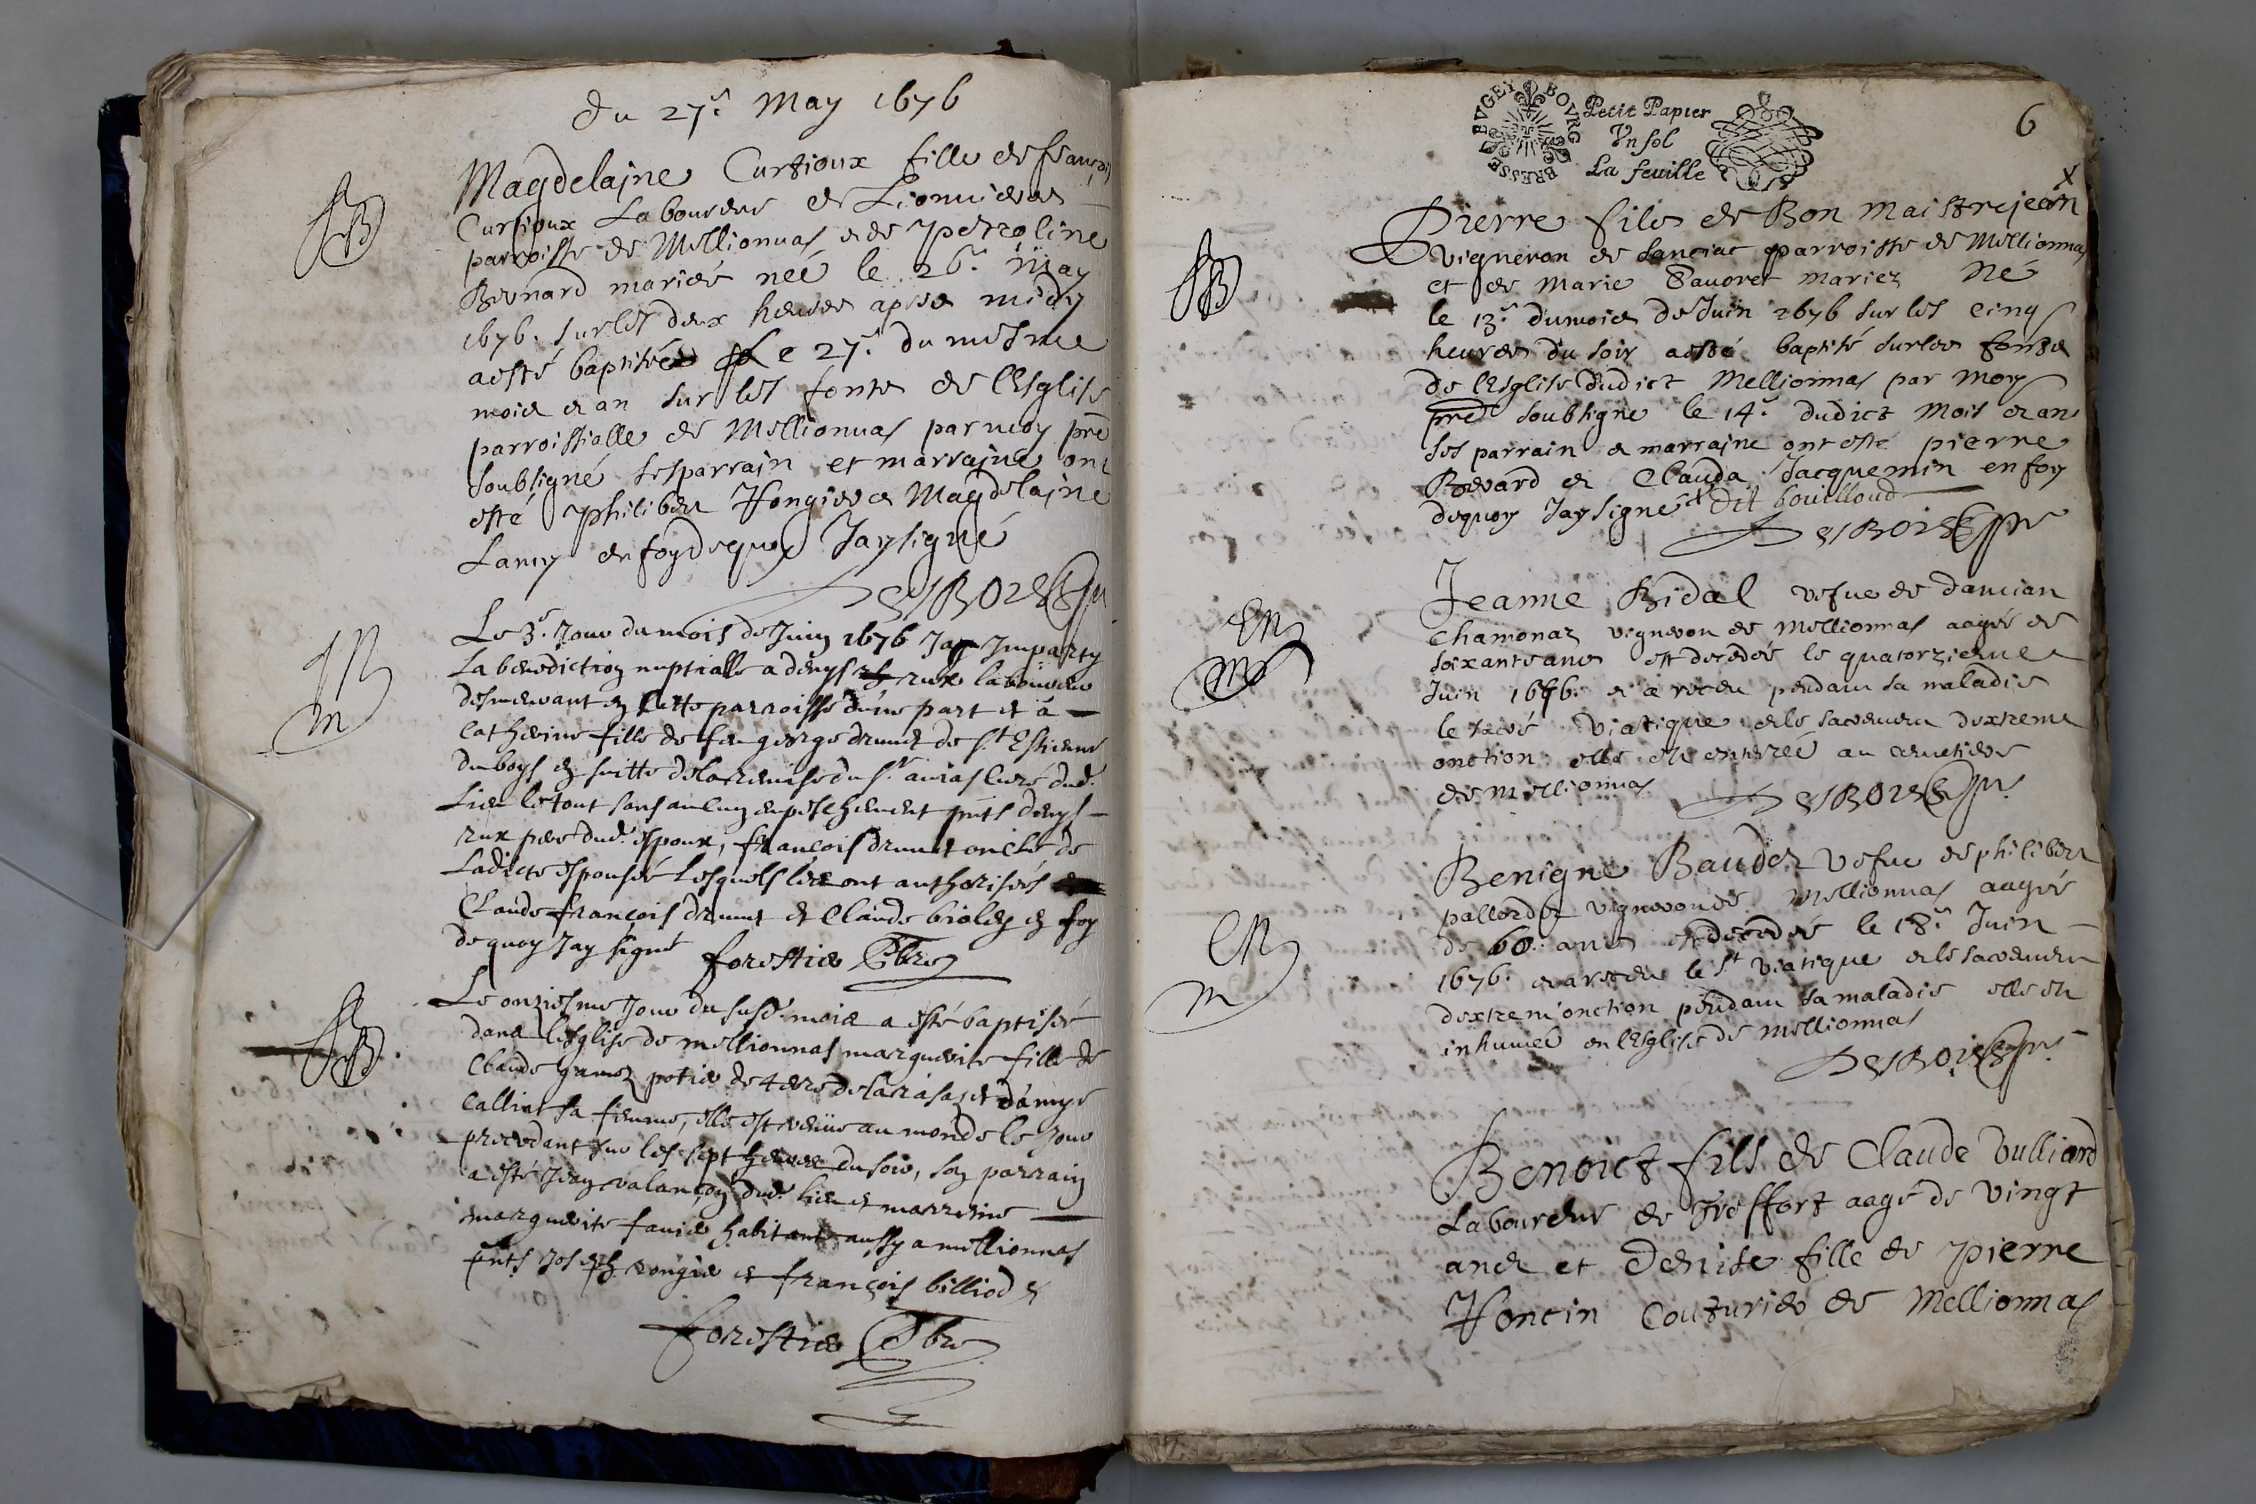 du 27e May 1676
Magdelajne Curtioux fille de françois
Curtioux Laboureur de Lionnieres
parroisse de Mellionnas et de Petroline
Bernard mariés neé le 26e May
1676. sur les deux heures apres midy
a esté baptisée le 27e du mesme
mois et an sur les fonts de l'Esglise
parroissialle de Mellionnas par moy pre
soubsigné ses parrain et marrajne ont
esté Philibert Hongier et Magdelajne
Lamy en foy de quoy Jay signé
DesBois pre
Le 3e Jour du mois de Juin 1676 Jay Imparty
La benediction nuptialle a denys rux laboureur
demeurant en cette parroisse d'une part et a
Catherine fille de feu george drunet de St Estienne
du boys en suitte de la remise du Sr curé dud.
Lieu le tout sans aulcun enpeschement pnts denys
rux pere dud. espoux, françois drunet oncle de
Ladicte espousée Lesquels les ont authorisés
Claude françois drunet et Claude bioley en foy
de quoy Jay signé forestier Pbre
Le onziesme Jour du susd. mois a esté baptisée
dans l'esglise de mellionnas marguerite fille de
Claude gamoz potier de terre et d'amyé
Calliat sa femme, elle est venüe au monde le Jour
precedant sur les sept heures du soir, son parrain
a esté Jean valançon dud. lieu et marreine
marguerite favier habitant aussy a mellionnas
pnts Joseph rongier et françois billiod
forestier Pbre
BRESSE BVGEY BOVRG
Petit Papier
Vn sol
La feuille
6
Pierre fils de Bon maistrejean x
vigneron de Sanciac parroisse de Mellionnas
et de Marie Favoret mariez Né
le 13e du mois de Juin 1676 sur les cinq
heures du soir a esté baptisé sur les fonts
de l'Esglise dudict Mellionnas par moy
pre soubsigne le 14e dudict Mois et an
ses parrain et marrajne ont esté pierre
Bevard et Clauda Jacquemin en foy
de quoy Jay signé x dit bouilloud
DesBois pre
Jeanne Bidal vefue de damian
Chamonaz vigneron de Mellionnas aagée de
soixante ans est decedée le quatorzieme
Juin 1676. et a receu pendant sa maladie
le sacré viatique et le sacrement d'extreme
onction elle est enterreé au cemetiere
de Mellionnas DesBois pre
Benigne Baudet vefue de philibert
pallordet vigneron de Mellionnas aagée
de 60. ans est decedée le 18e Juin
1676. et a receu le St viatique et le sacrement
d'extreme onction pendant sa maladie elle est
inhumeé en l'Esglise de Mellionnas
DesBois pre
Benoict fils de Claude vulliard
Laboureur de Treffort aagé de vingt
ans et Denise fille de pierre
Honcin Couturier de Mellionnas